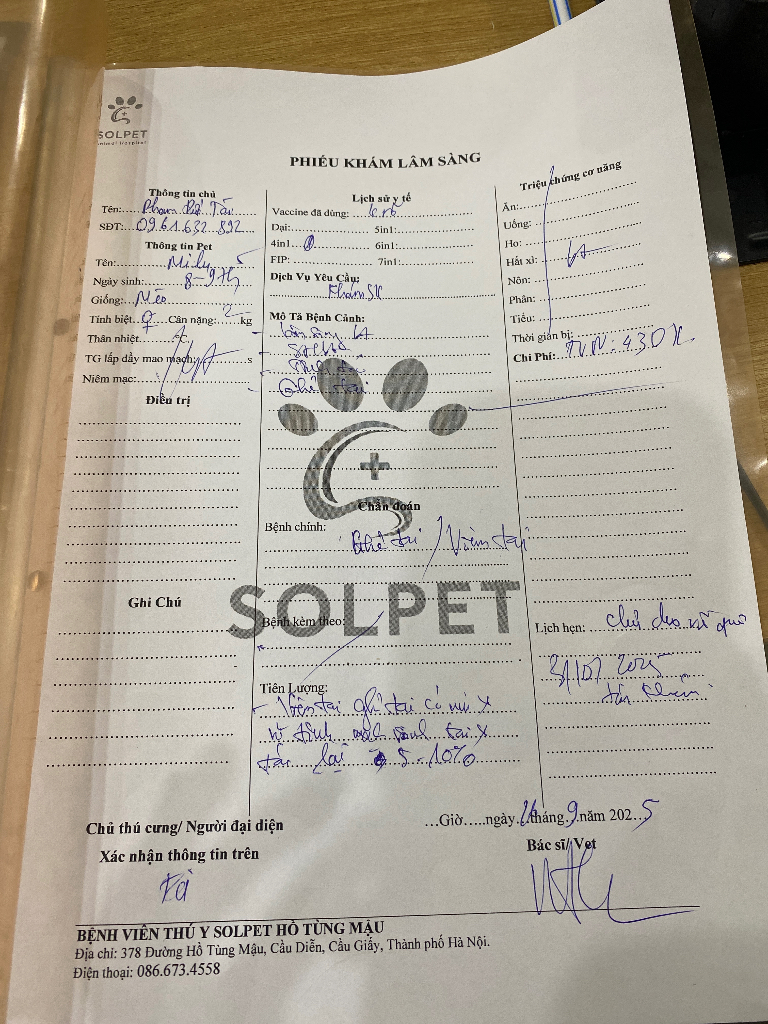 SOLPET
animal hospital
PHIẾU KHÁM LÂM SÀNG
Thông tin chủ
Tên:
SĐT: 0961.632.892
Thông tin Pet
Tên: Mily
Ngày sinh: 8-9th
Giống: Mèo
Tính biệt: ♀ Cân nặng: kg
Thân nhiệt: °C
TG lấp đầy mao mạch: s
Niêm mạc:
Điều trị
Ghi Chú
Lịch sử y tế
Vaccine đã dùng:
Dại: 5in1:
4in1 6in1:
FIP: 7in1:
Dịch Vụ Yêu Cầu:
Khám SK
Mô Tả Bệnh Cảnh:
Ghẻ tai
Chẩn đoán
Bệnh chính:
Ghẻ tai / Viêm tai
SOLPET
Bệnh kèm theo:
Tiên Lượng:
- Viêm tai ghẻ tai có
tai
lại 5-10%
Triệu chứng cơ năng
Ăn:
Uống:
Ho:
Hắt xì:
Nôn:
Phân:
Tiểu:
Thời gian bị:
Chi Phí: : 430K
Lịch hẹn:
31/07 2025
tái khám
Chủ thú cưng/ Người đại diện
Xác nhận thông tin trên
…Giờ…..ngày 26 tháng 9 năm 2025
Bác sĩ/ Vet
BỆNH VIỆN THÚ Y SOLPET HỒ TÙNG MẬU
Địa chỉ: 378 Đường Hồ Tùng Mậu, Cầu Diễn, Cầu Giấy, Thành phố Hà Nội.
Điện thoại: 086.673.4558